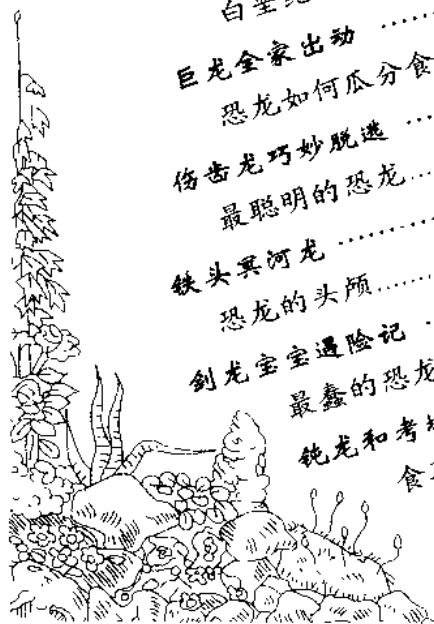 白垩纪
巨龙全家出动 ……
恐龙如何瓜分食
伤齿龙巧妙脱逃 …
最聪明的恐龙 …
铁头冥河龙 ………
恐龙的头颅 ……
剑龙宝宝遇险记
最蠢的恐龙
钝龙和考
食